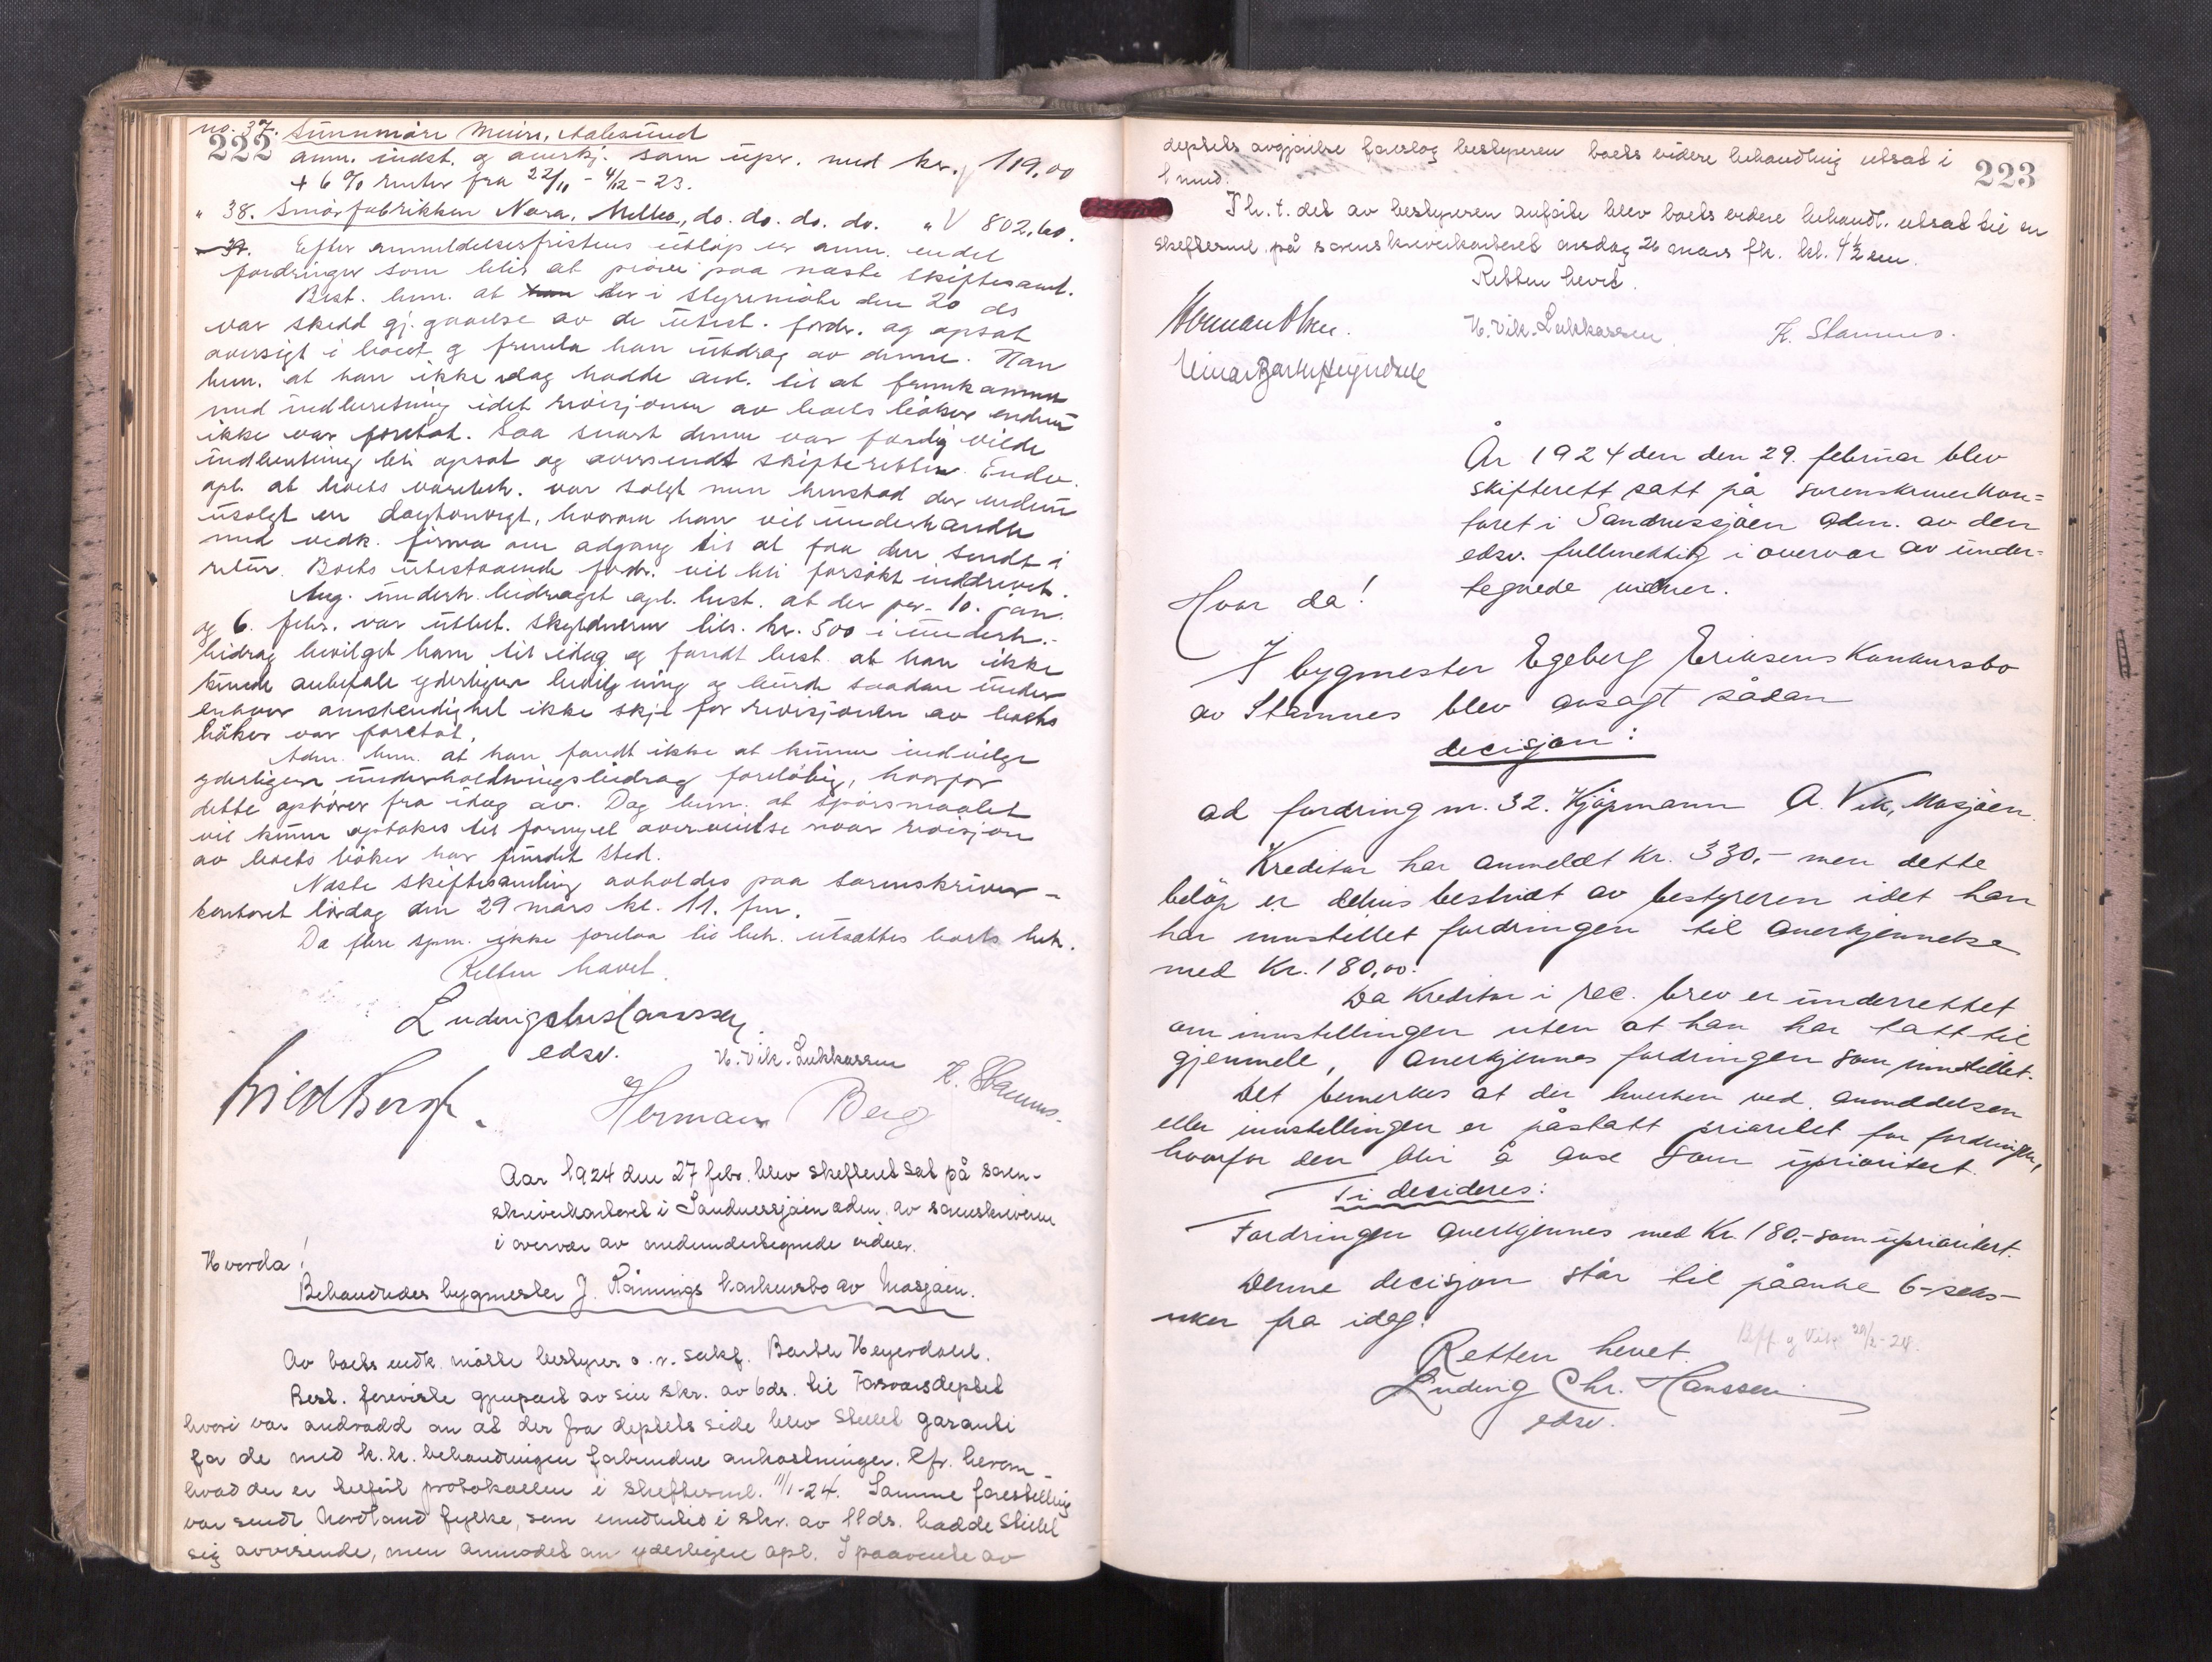 222
no. 37. Sunnmöre Meieri, Aalesund
anm. indst. og anerkj. som upr. med kr. 119,00
+ 6 % renter fra 22/11 - 4/12 - 23.
" 38. Smörfabrikken Nora, Melbo, do. do. do. do. " V 802,60.
39. Efter anmeldelsesfristens utlöp er anm. endel
fordringer som blir at pröve paa næste skiftesaml.
Best. bem. at han der i styremöte den 20 ds
var skedd gj.gaaelse av de utest. fordr. og opsat
oversigt i boet og fremla han utdrag av denne. Han
bem. at han ikke idag hadde anl. til at fremkomme
med indberetning idet revisjonen av boets böker endnu
ikke var foretat. Saa snart denne var færdig vilde
indberetning bli opsat og oversendt skifteretten. Endv.
opl. at boets varebeh. var solgt men henstod der endnu
usolgt en dagtonvegt, hvorom han vil underhandle
med vedk. firma om adgang til at faa den sendt i
retur. Boets utestaaende fordr. vil bli forsökt inddrevet.
Ang. underh. bidraget opl. best. at der per. 10. jan.
og 6. febr. var utbet. skyldneren tils. kr. 500 i underh.-
bidrag bevilget ham til idag og fandt best. at han ikke
kunde anbefale yderligere bevilgning og burde saadan under
enhver omstendighet ikke skje för revisjonen av boets
böker var foretat.
Adm. bem. at han fandt ikke at kunne indvilge
yderligere underholdningsbidrag foreløbig, hvorfor
dette ophörer fra idag av. Dog bem. at spörsmaalet
vil kunne optakes til fornyet overveielse naar revisjon
av boets böker har fundet sted.
Næste skiftesamling avholdes paa sorenskriver-
kontoret lördag den 29 mars kl. 11. fm.
Da flere spm. ikke forelaa til beh. utsattes boets beh.
Retten hævet.
Ludvig Chr. Hanssen
edsv.
H. Vik-Lukkassen
K. Stamnes.
Herman Berg
Aar 1924 den 27 febr. blev skifteret sat på soren-
skriverkontoret i Sandnessjøen adm. av sorenskriveren
i overvær av medundertegnede vidner.
Hvorda!
Behandledes bygmester J. Rånnings konkursbo av Mosjøen.
Av boets vedk. møtte bestyrer o.r. sakf. Barth Heyerdahl.
Best. foreviste gjenpart av sin skr. av 6ds. til Forsvarsdeptet
hvori var andradd om at der fra deptets side blev stillet garanti
for de med k.k. behandlingen forbundne omkostninger. Cfr. herom
hvad der er tilført protokollen i skiftesml. 11/1-24. Samme forestilling
var sendt Nordland fylke, som imidlertid i skr. av 11ds. hadde stillet
sig avvisende, men anmodet om yderligere opl. I paavente av
223
deptets avgjørelse foreslog bestyreren boets videre behandling utsat i
1 mnd.
I h. t. det av bestyreren anførte blev boets videre behandl. utsat til en
skiftesml. på sorenskriverkontoret onsdag 26 mars fk. kl. 4 1/2 em.
Retten hevet.
Herman Olsen.
H. Vik-Lukkassen.
K. Stamnes.
Einar Barth Heyerdahl
År 1924 den den 29. februar blev
skifterett satt på sorenskriverkon=
toret i Sandnessjøen adm. av den
edsv. fullmektig i overvær av under=
tegnede vidner.
Hvor da!
I bygmester Egeberg Eriksens Konkursbo
av Stamnes blev avsagt sådan
decisjon:
ad fordring nr. 32. Kjöpmann A. Vik, Mosjøen.
Kreditor har anmeldt Kr. 330.- men dette
belöp er delvis bestridt av bestyreren idet han
har innstillet fordringen til anerkjennelse
med Kr. 180,00.
Da Kreditor i rec. brev er underrettet
om innstillingen uten at han har tatt til
gjenmele, anerkjennes fordringen som innstillet.
Det bemerkes at der hverken ved anmeldelsen
eller innstillingen er påstått prioritet for fordringen,
hvorfor den blir å anse som uprioritert.
Ti decideres:
Fordringen anerkjennes med Kr. 180.- som uprioritert.
Denne decisjon står til påanke 6-seks-
uker fra idag.
Retten hevet.
Ludvig Chr. Hanssen
edsv.